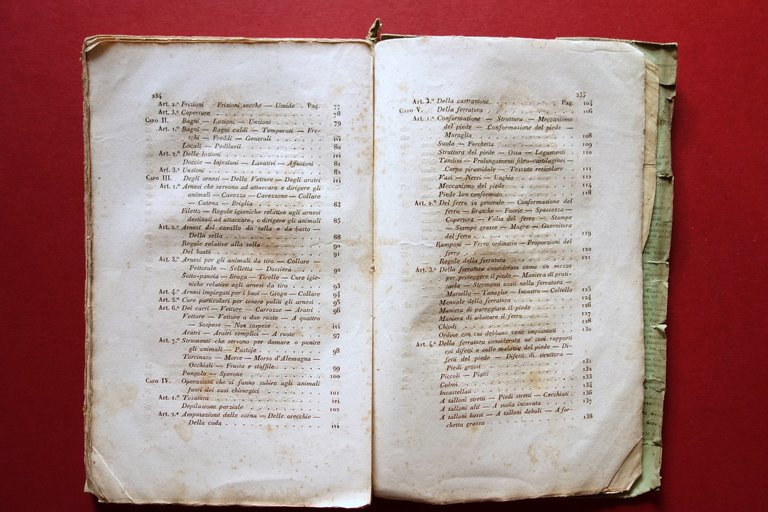 234
Art. 2.º Frizioni — Frizioni secche — Umide . Pag. 77
Art. 3.º Coperture . 78
Capo II. Bagni — Lozioni — Unzioni . 79
Art. 1.º Bagni — Bagni caldi — Temperati — Fre-
schi — Freddi — Generali . ivi
Locali — Pediluvii . 80
Art. 2.º Delle lozioni . ivi
Doccie — Iniezioni — Lavativi — Affusioni . 81
Art. 3.º Unzioni . 82
Capo III. Degli arnesi — Delle Vetture — Degli aratri ivi
Art. 1.º Arnesi che servono ad attaccare o dirigere gli
animali — Cavezza — Cavezzone — Collare
— Catena — Briglia . 83
Filetto — Regole igieniche relative agli arnesi
destinati ad attaccare, o dirigere gli animali 85
Art. 2.º Arnesi del cavallo da sella e da basto —
Della sella . 88
Regole relative alla sella . 90
Del basto . 91
Art. 3.º Arnesi per gli animali da tiro — Collare —
Pettorale — Selletta — Dossiera . 92
Sotto-pancia — Braga — Tirelle — Cure igie-
niche relative agli arnesi da tiro . 93
Art. 4.º Arnesi impiegati per i buoi — Giogo — Collare 94
Art. 5.º Cure particolari per tenere puliti gli arnesi . 95
Art. 6.º Dei carri — Vetture — Carrozze — Aratri . 96
Vetture — Vetture a due ruote — A quattro
— Suspese — Non sospese . ivi
Aratri — Aratri semplici — A ruote . 97
Art. 7.º Strumenti che servono per domare o punire
gli animali — Pastoje . 98
Torcinaso — Morse — Morso d'Alemagna —
Occhiali — Frusta e staffile . 99
Pungolo — Sperone . 100
Capo IV. Operazioni che si fanno subire agli animali
fuori dei casi chirurgici . 101
Art. 1.º Tosatura . ivi
Depilazione parziale . 102
Art. 2.º Amputazione delle corna — Delle orecchie —
Della coda . ivi
235
Art. 3.º Della castrazione . Pag. 104
Capo V. Della ferratura . 106
Art. 1.º Conformazione — Struttura — Meccanismo
del piede — Conformazione del piede —
Muraglia . 108
Suola — Forchetta . 109
Struttura del piede — Ossa — Legamenti . 110
Tendini — Prolungamenti fibro-cartilaginei —
Corpo piramidale — Tessuto reticolare . 111
Vasi — Nervi — Unghia . 112
Meccanismo del piede . 114
Piede ben conformato . 118
Art. 2.º Del ferro in generale — Conformazione del
ferro — Branche — Faccie — Spessezza —
Copertura — Volta del ferro — Stampe
— Stampe grasse — Magre — Guernitura
del ferro .
Ramponi — Ferro ordinario — Proporzioni del
ferro . 120
Regole della ferratura . 121
Art. 3.º Della ferratura considerata come un mezzo
per proteggere il piede — Maniera di prati-
carla — Stromenti usati nella ferratura —
Martello — Tanaglie — Incastro — Coltello 125
Manuale della ferratura . 124
Maniera di pareggiare il piede . 126
Maniera di adattare il ferro . 127
Chiodi . 128
Ordine con cui debbono venir impiantati . 130
Art. 4.º Della ferratura considerata ne' suoi rapporti
coi difetti e colle malattie del piede — Di-
fetti del piede — Difetti di struttura —
Piedi grassi . 131
Piccoli — Piatti . 133
Colmi . 134
Incastellati .
A talloni stretti — Piedi stretti — Cerchiati . 136
A talloni alti — A suola incurata . 137
A talloni bassi — A talloni deboli — A for-
chetta grassa . 138